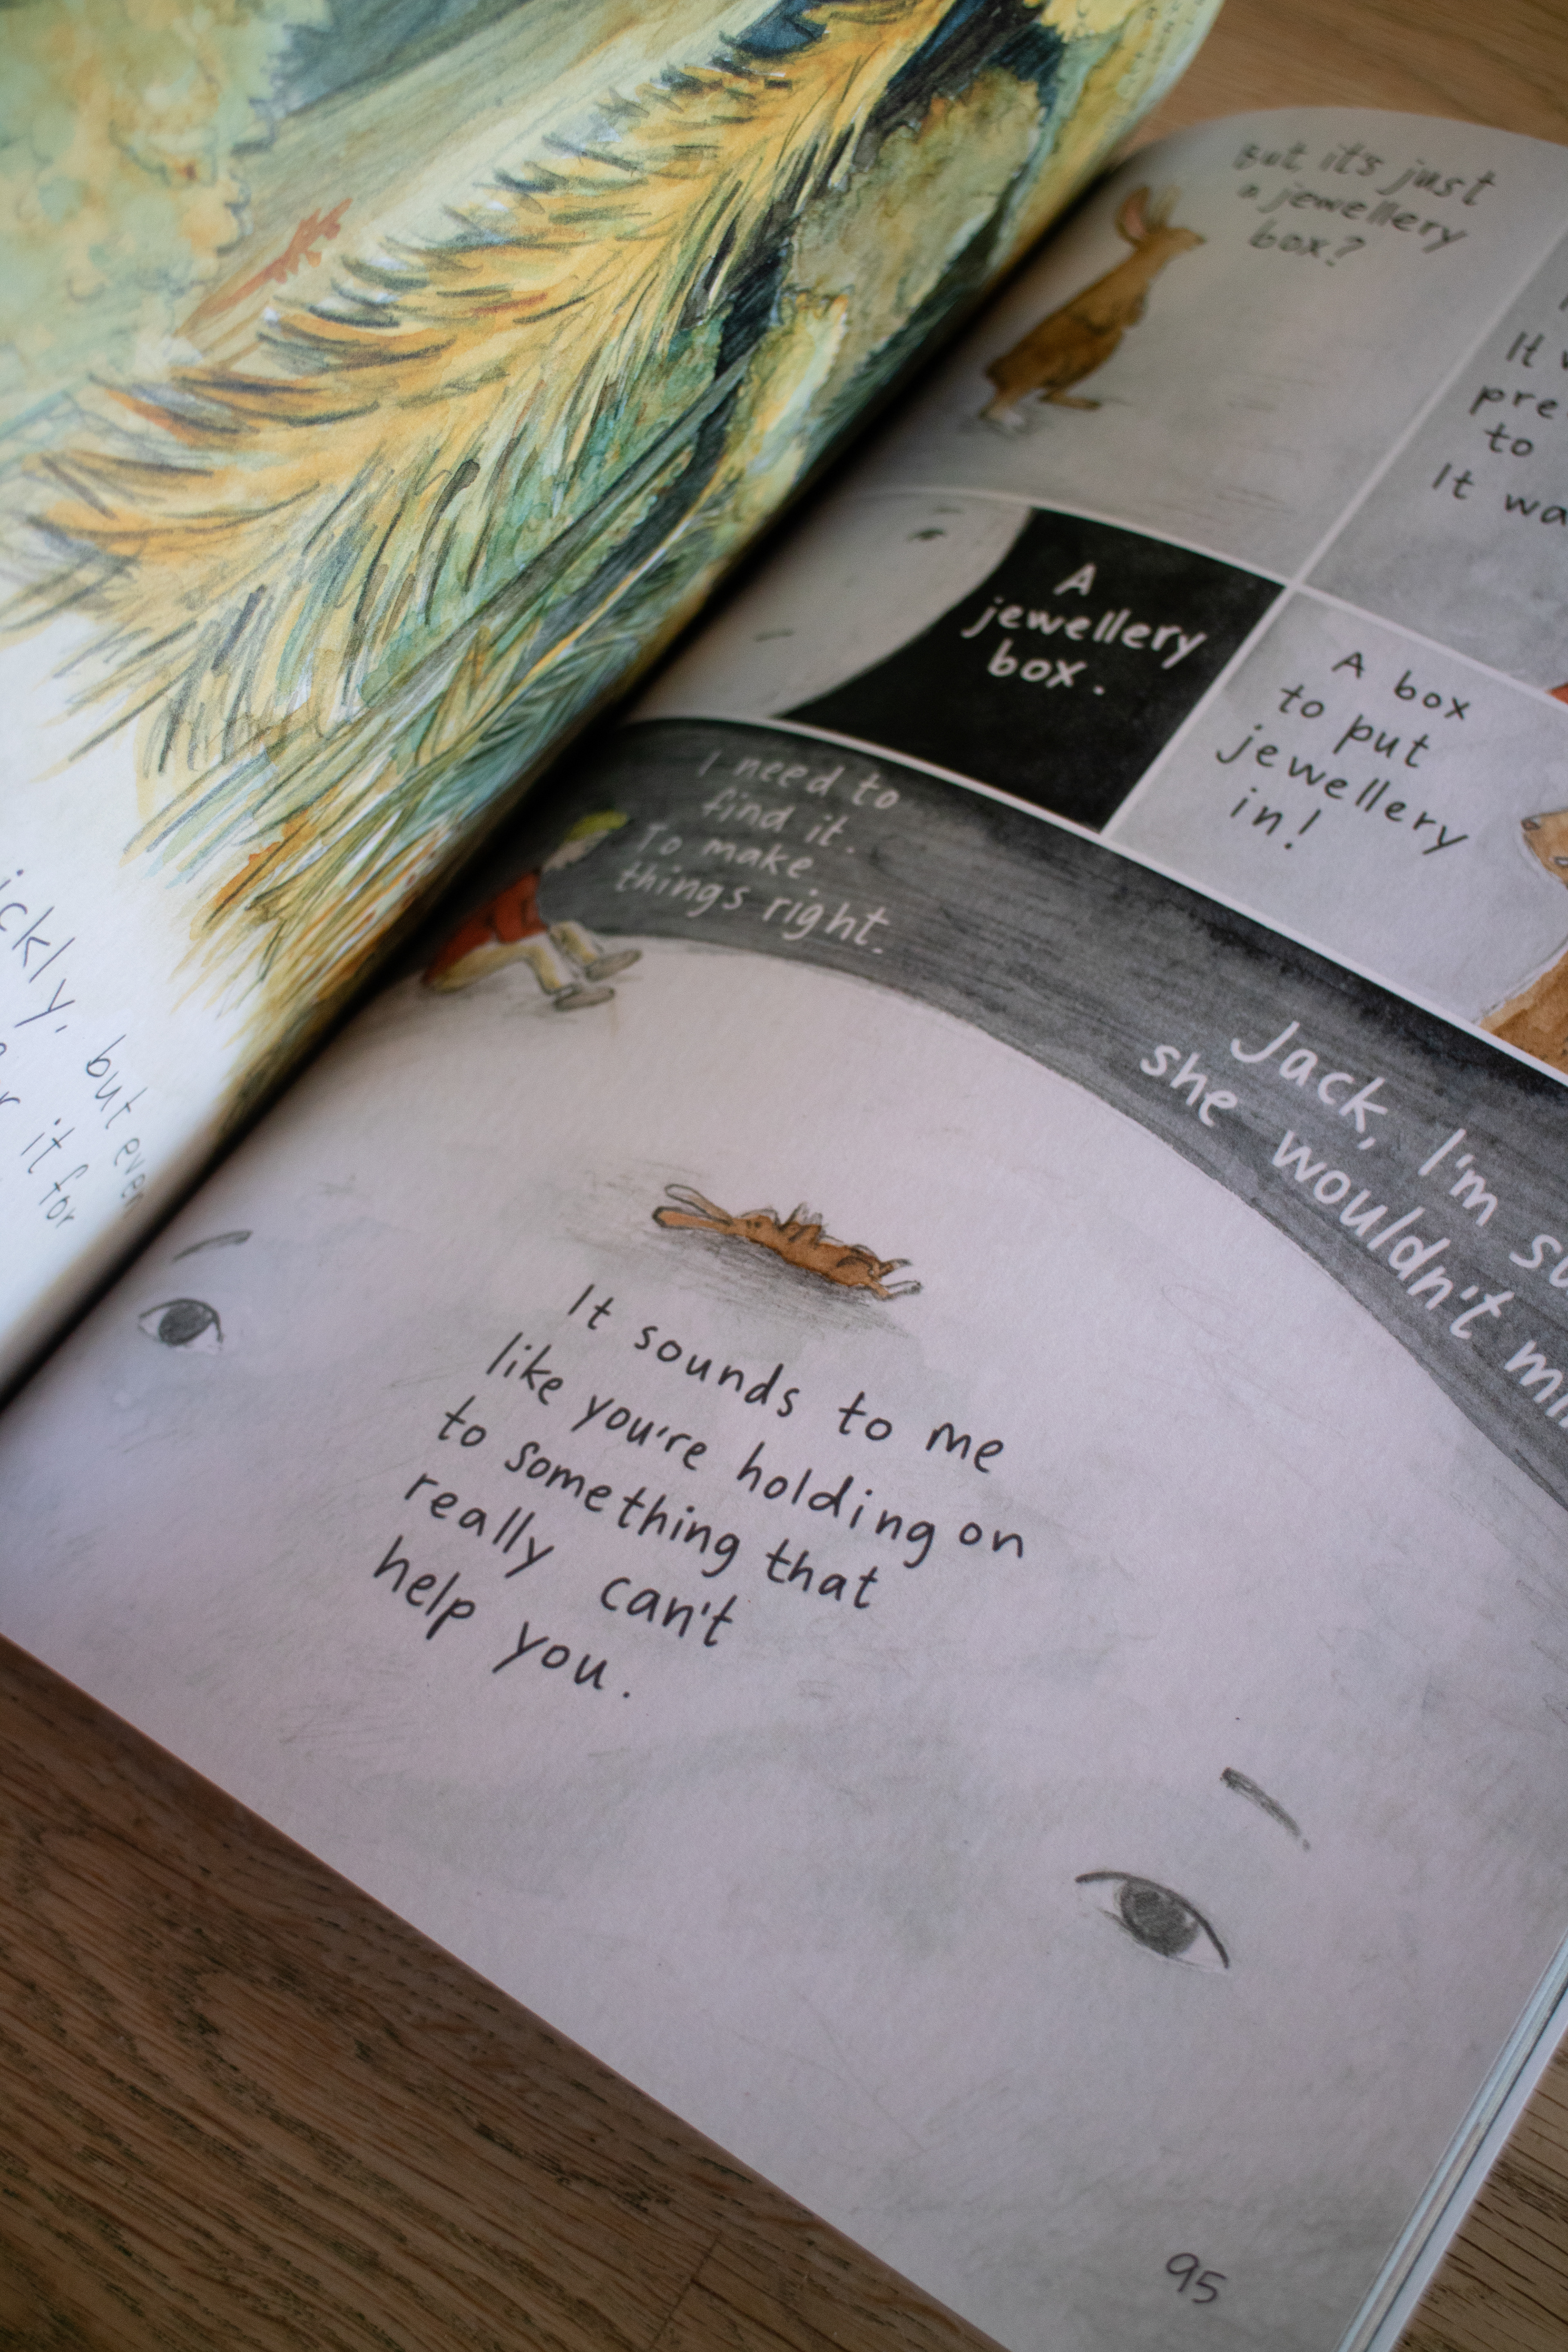 but even
it for
But it's just
a jewellery
box?
It
to
It
A
jewellery
box.
A box
to put
jewellery
in!
I need to
find it.
To make
things right.
Jack, I'm
she wouldn't
It sounds to me
like you're holding on
to something that
really can't
help you.
95